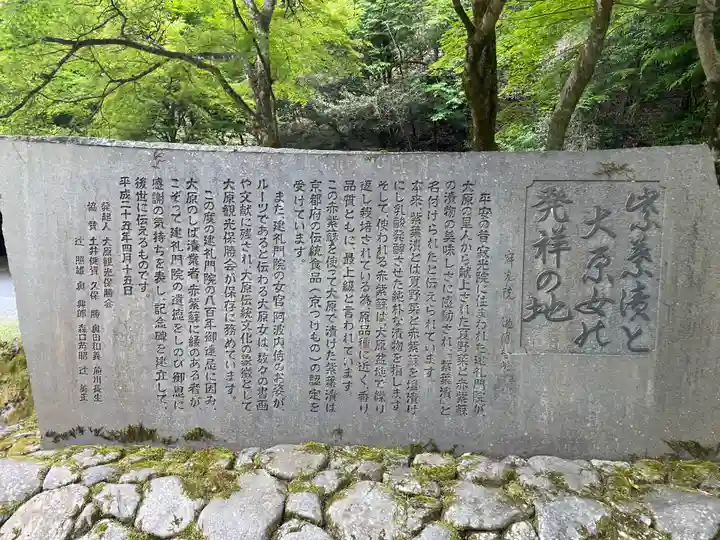 紫葉漬と
大原女の
発祥の地
寂光院
平安の昔、寂光院に住まわれた建礼門院が、
大原の里人から献上された夏野菜と赤紫蘇
の漬物の美味しさに感動され、「紫葉漬」と
名付けられたと伝えられています。
本来、紫葉漬とは夏野菜と赤紫蘇を塩漬け
にし乳酸発酵させた純朴な漬物を指します。
そして、使われる赤紫蘇は、大原盆地で繰り
返し栽培されている為、原品種に近く、香り
品質ともに、最上級と言われています。
この赤紫蘇を使って大原で漬けた紫葉漬は
京都府の伝統食品(京つけもの)の認定を
受けています。
また、建礼門院の女官、阿波内侍のお姿が
ルーツであると伝わる大原女は、数々の書画
や文献に残され、大原伝統文化の象徴として
大原観光保勝会が保存に努めています。
この度の建礼門院の八百年御遠忌に因み、
大原のしば漬業者、赤紫蘇に縁のある者が
こぞって、建礼門院の遺徳をしのび御恩に
感謝の気持ちを表し、記念碑を建立して、
後世に伝えるものです。
平成二十五年四月十五日
発起人 大原観光保勝会
協賛 土井健資 久保勝 奥田和義 前川長生
辻照雄 奥興郎 森口英昭 辻英正